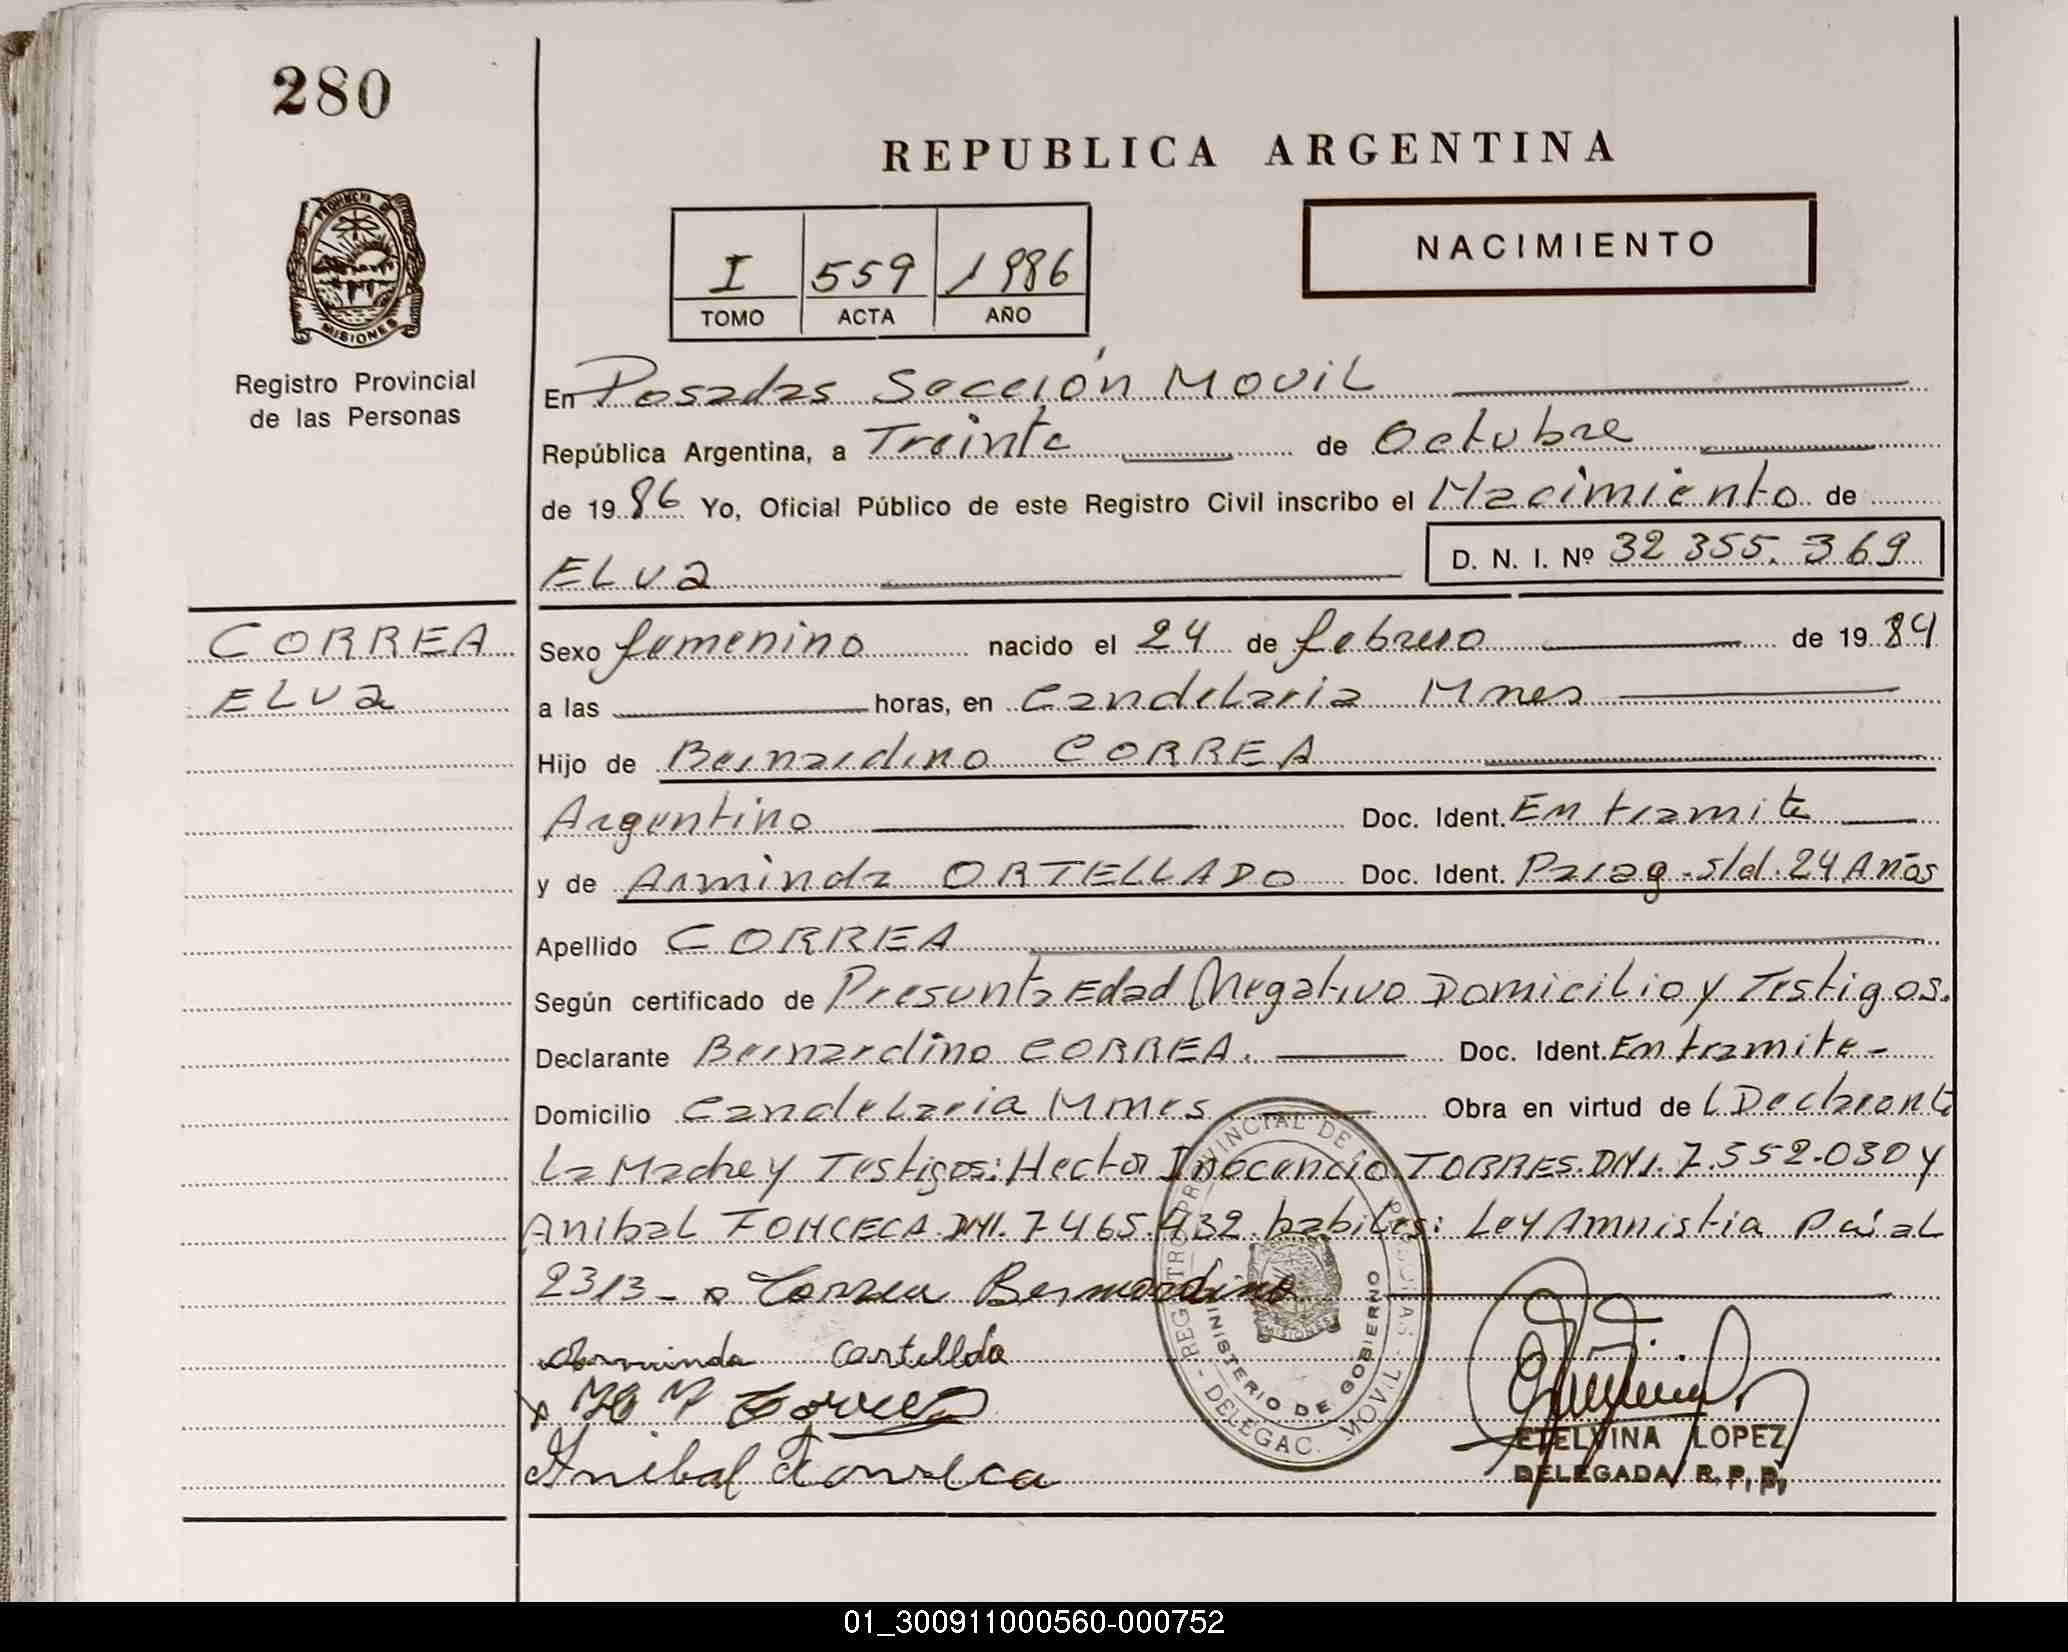 280
REPUBLICA ARGENTINA
NACIMIENTO
I 559 1986
TOMO ACTA AÑO
PROVINCIA DE MISIONES
Registro Provincial
de las Personas
En Posadas Sección Movil
República Argentina, a Treinta de Octubre
de 1986 Yo, Oficial Público de este Registro Civil inscribo el Nacimiento de
ELva D. N. I. Nº 32 355.369
CORREA
ELva
Sexo femenino nacido el 24 de febrero de 1984
a las horas, en Candelaria Mnes
Hijo de Bernardino CORREA
Argentino Doc. Ident. En tramite
y de Arminda ORTELLADO Doc. Ident. Parag. s/d. 24 Años
Apellido CORREA
Según certificado de Presunta Edad Negativo Domicilio y Testigos.
Declarante Bernardino CORREA. Doc. Ident. En tramite-
Domicilio Candelaria Mnes Obra en virtud de L Declarante
La Madre y Testigos: Hector Inocencio TORRES.DNI.7.552.030 y
Anibal FONCECA.DNI.7465.432 habiles: Ley Amnistia Pcial
2313- Correa Bernardino
Arminda Ortellado
Torres
Anibal Fonseca
REGISTRO PROVINCIAL DE LAS PERSONAS
MINISTERIO DE GOBIERNO
- DELEGAC. MOVIL -
ETELVINA LOPEZ
DELEGADA R. P. P.
01_300911000560-000752